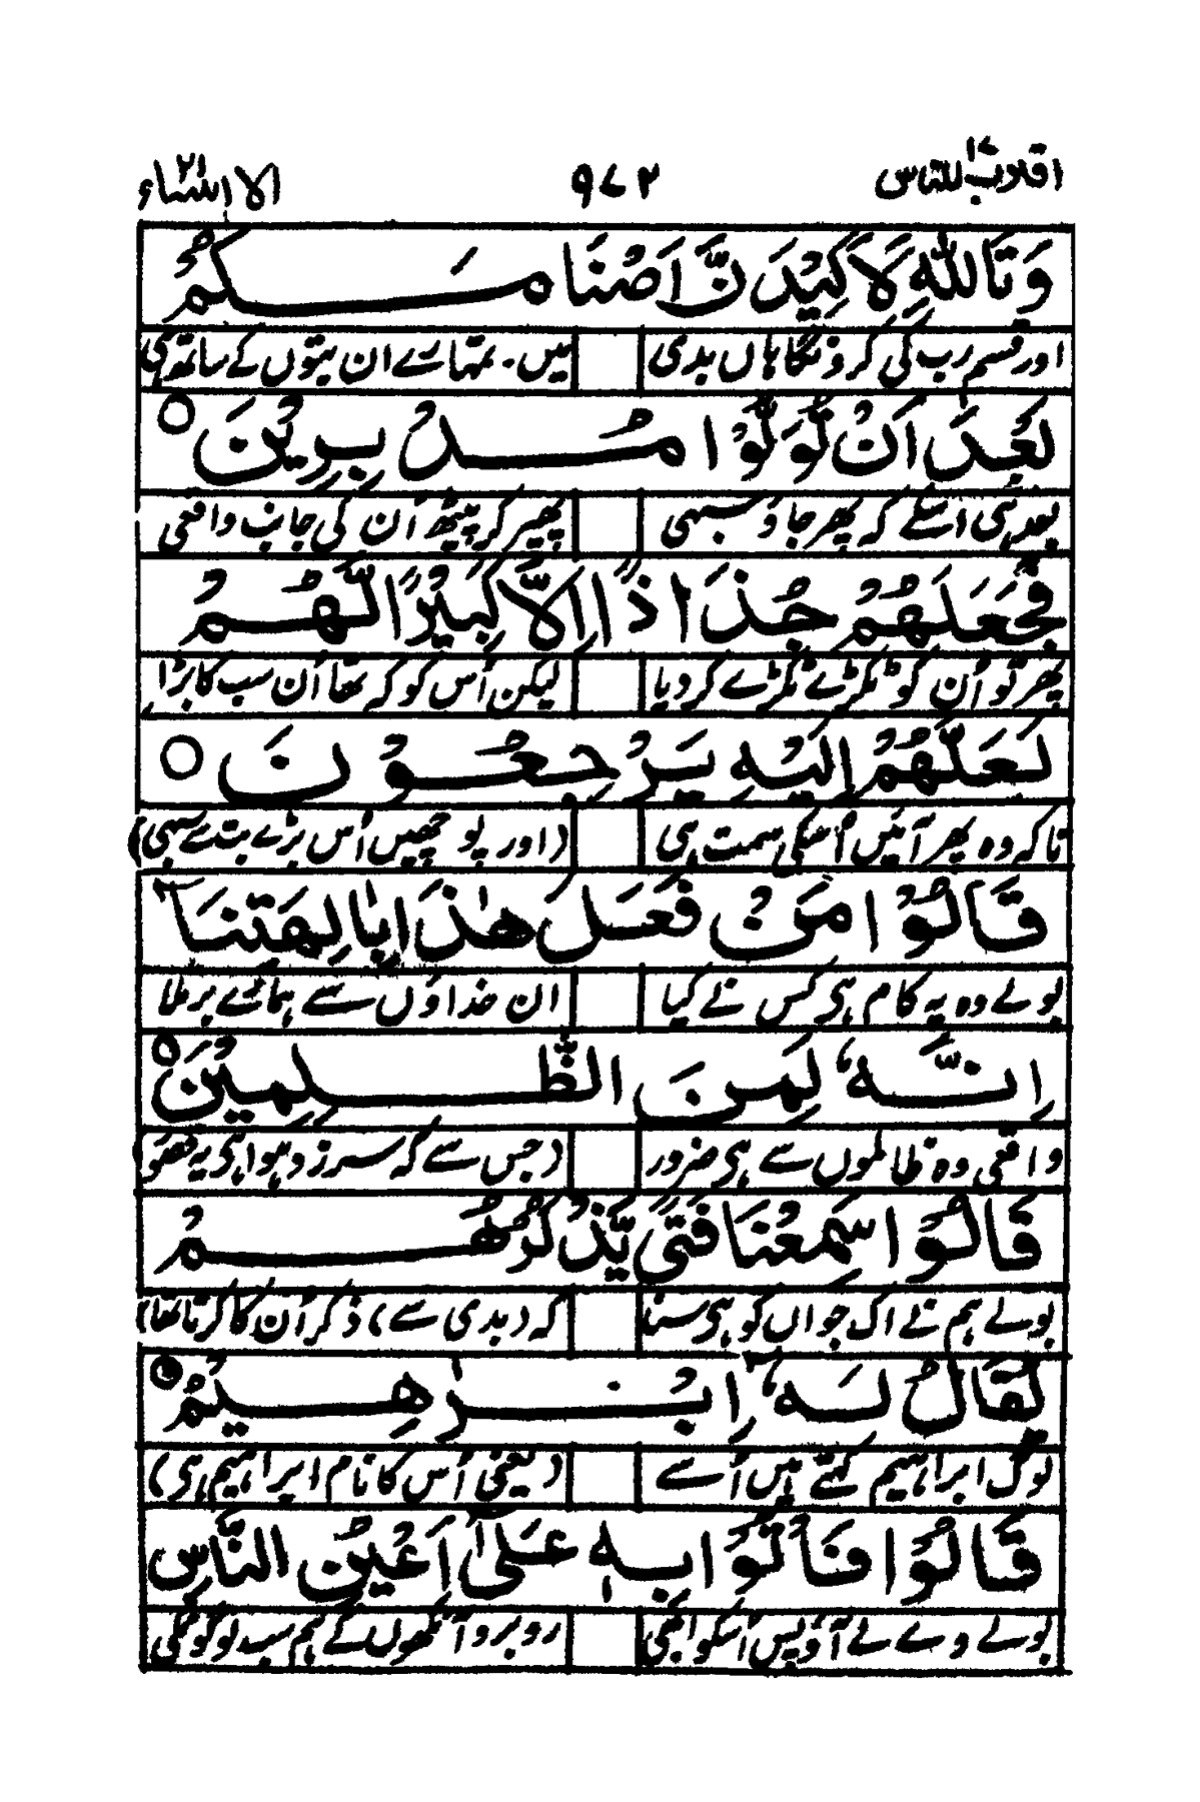 اقترب للناس ١٧ ٩٧٢ الانبیاء ٢١
وَتَاللّٰهِ لَاَكِيْدَنَّ اَصْنَامَكُمْ
اور قسم رب کی کروں گا ہاں بدی میں۔ تمہارے ان بتوں کے ساتھ ہی
بَعْدَ اَنْ تُوَلُّوْا مُدْبِرِيْنَ ○
بعد ہی اسکے کہ پھر جاؤ سبھی پھیر کر پیٹھ اُن کی جانب واقعی
فَجَعَلَهُمْ جُذَاذًا اِلَّا كَبِيْرًا لَّهُمْ
پھر تو اُن کو ٹکڑے ٹکڑے کر دیا لیکن اُس کو کہ تھا اُن سب کا بڑا
لَعَلَّهُمْ اِلَيْهِ يَرْجِعُوْنَ ○
تاکہ وہ پھر آئیں اُسکی سمت ہی (اور پوچھیں اُس بڑے بت سے سبھی)
قَالُوْا مَنْ فَعَلَ هٰذَا بِاٰلِهَتِنَآ
بولے وہ یہ کام ہی کس نے کیا ان خداؤں سے ہمارے برملا
اِنَّهٗ لَمِنَ الظّٰلِمِيْنَ ○
واقعی وہ ظالموں سے ہی ضرور (جس سے کہ سرزد ہوا ہی یہ قصور)
قَالُوْا سَمِعْنَا فَتًى يَّذْكُرُهُمْ
بولے ہم نے اک جواں کو ہی سنا کہ (بدی سے) ذکر اُن کا کرتا تھا)
يُقَالُ لَهٗٓ اِبْرٰهِيْمُ ○
لوگ ابراہیم کہتے ہیں اُسے (یعنی اُس کا نام ابراہیم ہی)
قَالُوْا فَاْتُوْا بِهٖ عَلٰٓى اَعْيُنِ النَّاسِ
بولے وے لے آؤ پس اُسکو ابھی روبرو آنکھوں کے ہم سب لوگو نکی